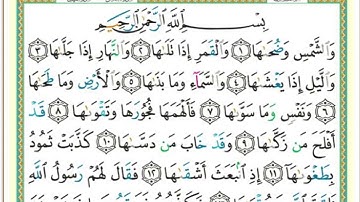 بِسْمِ ٱللَّهِ ٱلرَّحْمَٰنِ ٱلرَّحِيمِ
وَٱلشَّمْسِ وَضُحَىٰهَا ﴿١﴾ وَٱلْقَمَرِ إِذَا تَلَىٰهَا ﴿٢﴾ وَٱلنَّهَارِ إِذَا جَلَّىٰهَا ﴿٣﴾
وَٱلَّيْلِ إِذَا يَغْشَىٰهَا ﴿٤﴾ وَٱلسَّمَآءِ وَمَا بَنَىٰهَا ﴿٥﴾ وَٱلْأَرْضِ وَمَا طَحَىٰهَا
﴿٦﴾ وَنَفْسٍ وَمَا سَوَّىٰهَا ﴿٧﴾ فَأَلْهَمَهَا فُجُورَهَا وَتَقْوَىٰهَا ﴿٨﴾ قَدْ
أَفْلَحَ مَن زَكَّىٰهَا ﴿٩﴾ وَقَدْ خَابَ مَن دَسَّىٰهَا ﴿١٠﴾ كَذَّبَتْ ثَمُودُ
بِطَغْوَىٰهَآ ﴿١١﴾ إِذِ ٱنۢبَعَثَ أَشْقَىٰهَا ﴿١٢﴾ فَقَالَ لَهُمْ رَسُولُ ٱللَّهِ